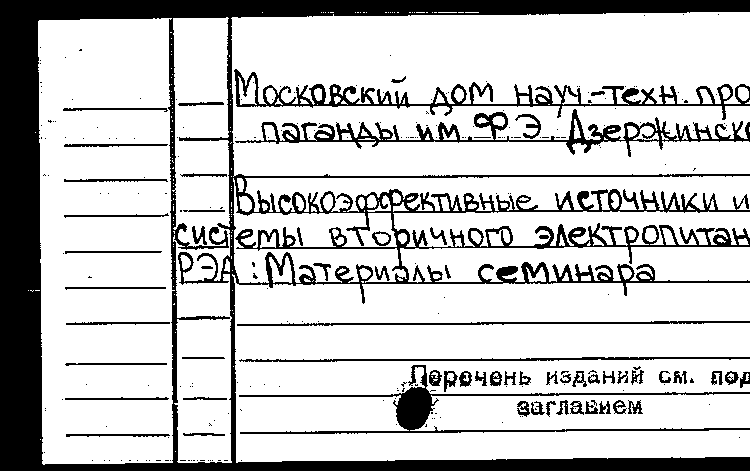 Московский дом науч.-техн. про
паганды им. Ф.Э. Дзержинско
Высокоэффективные источники и
системы вторичного электропитан
РЭА : Материалы семинара
Перечень изданий см. под
заглавием